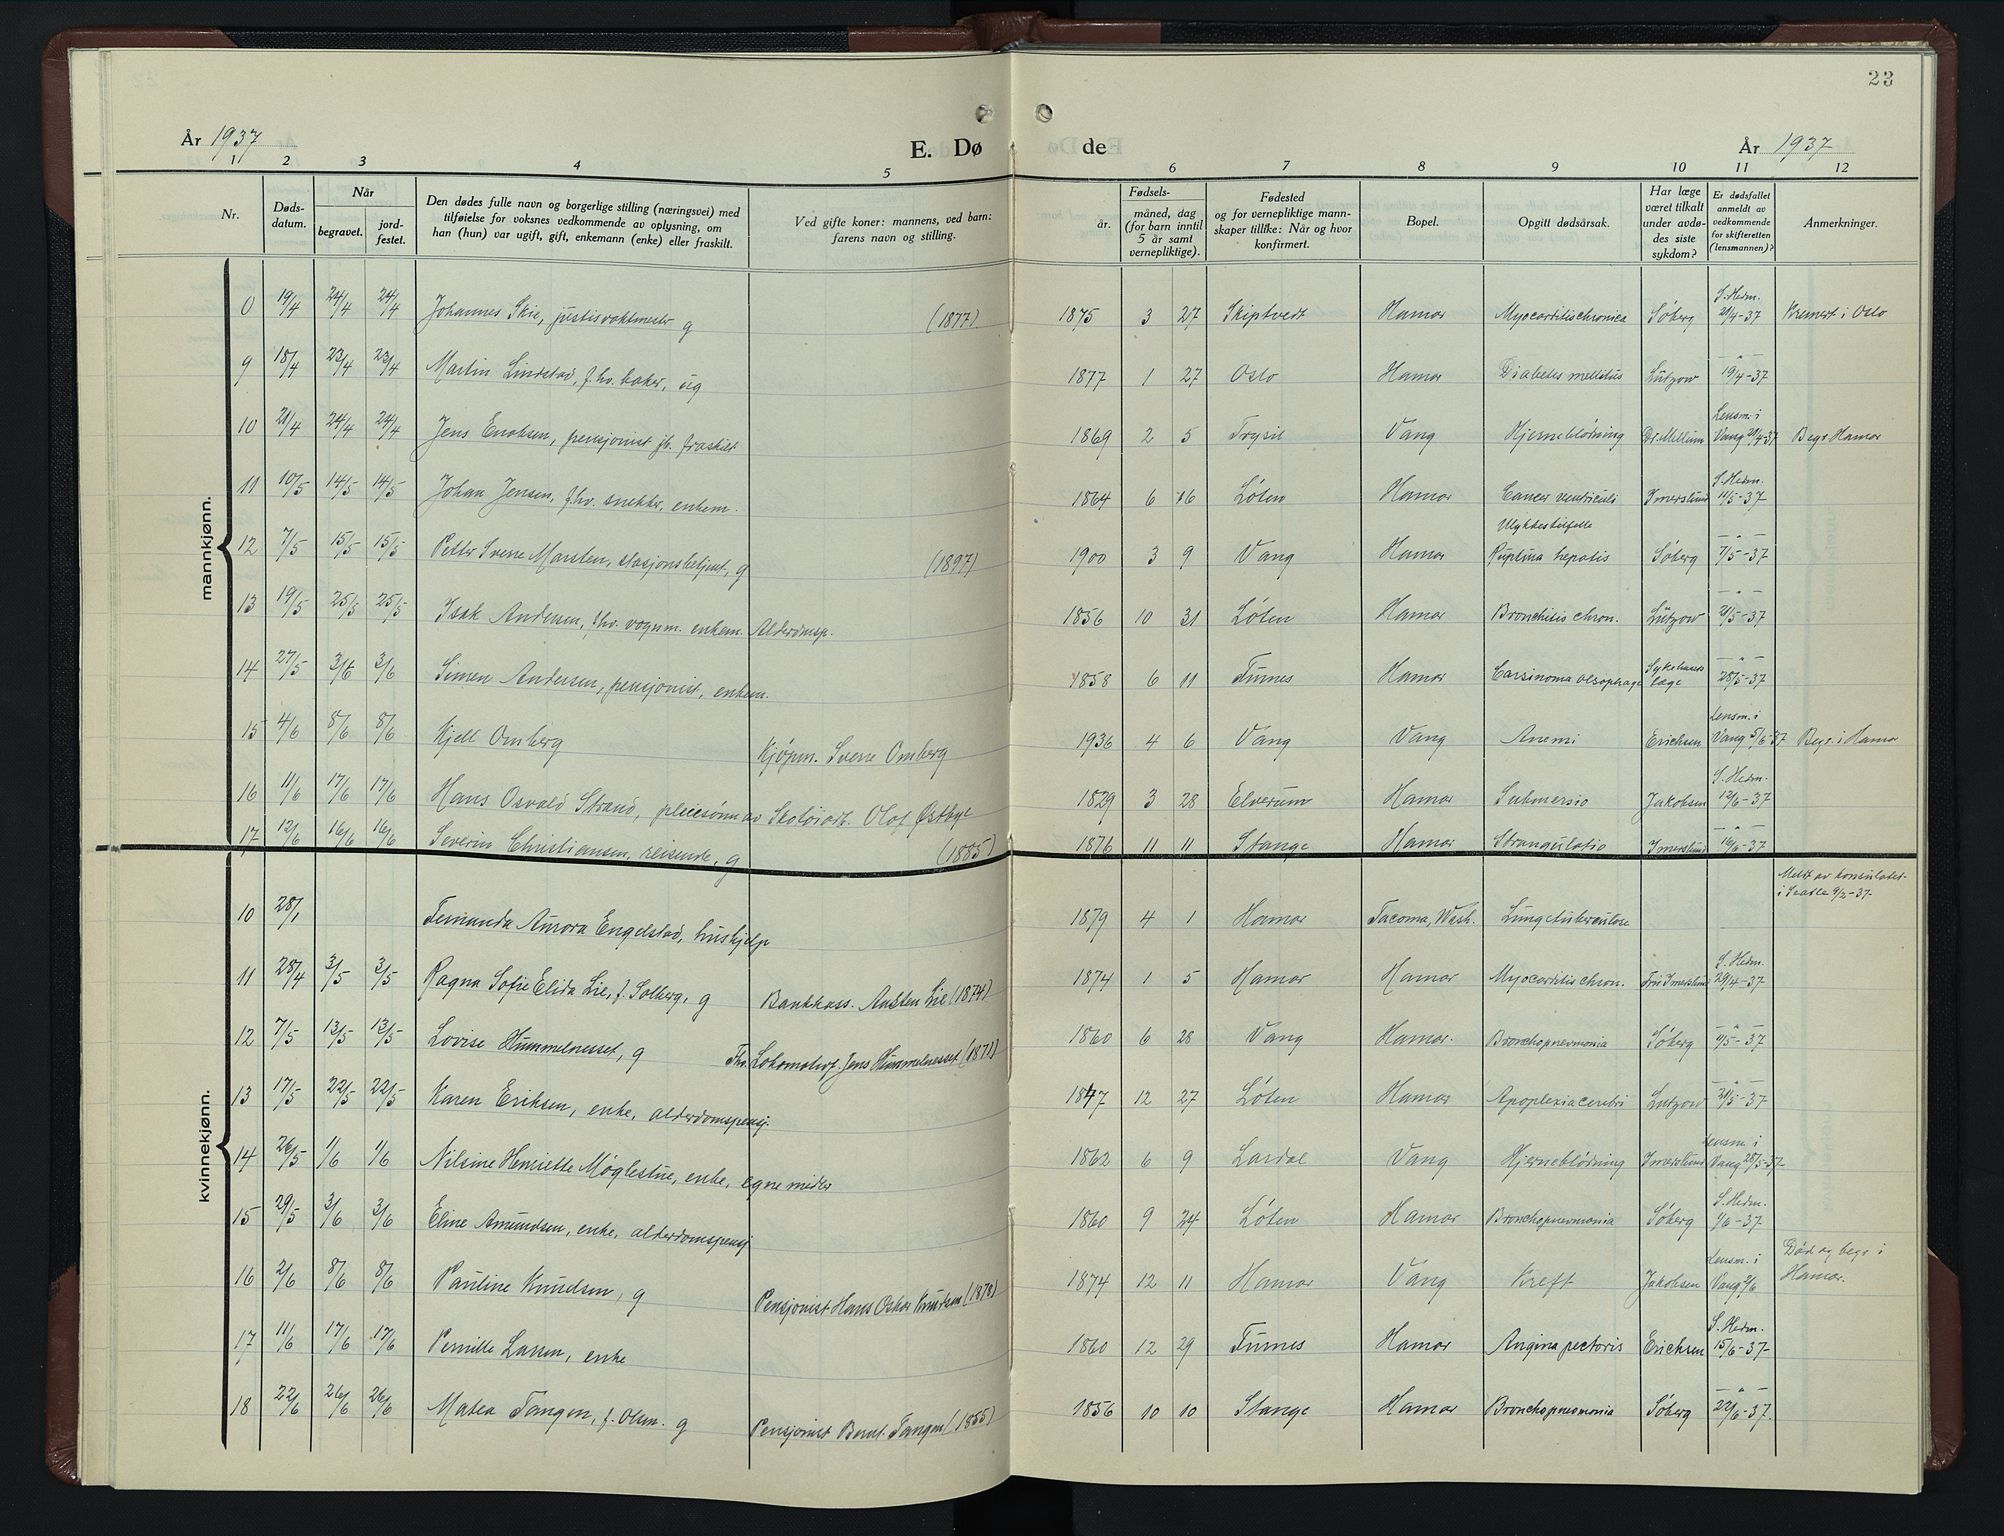 23
År 1937 E. Dø de År 1937
1 2 3 4 5 6 7 8 9 10 11 12
Nr. Døds-datum. Når begravet. jord-festet. Den dødes fulle navn og borgerlige stilling (næringsvei) med tilføielse for voksnes vedkommende av oplysning, om han (hun) var ugift, gift, enkemann (enke) eller fraskilt. Ved gifte koner: mannens, ved barn: farens navn og stilling. Fødsels- år. måned, dag (for barn inntil 5 år samt vernepliktige). Fødested og for vernepliktige mann-skaper tillike: Når og hvor konfirmert. Bopel. Opgitt dødsårsak. Har læge været tilkalt under avdø-des siste sykdom? Er dødsfallet anmeldt av vedkommende for skifteretten (lensmannen)? Anmerkninger.
mannkjønn.
19/4 24/4 24/4 Johannes Skie, justisvaktmester g (1877) 1875 3 27 Skiptvedt Hamar Myocarditis chronica Søberg S. Hedm. 21/4-37 Kremert i Oslo
9 18/4 23/4 23/4 Martin Lindstad, f.hv. baker, ug 1877 1 27 Oslo Hamar Diabetes mellitus Lützow -"- 19/4-37
10 21/4 24/4 24/4 Jens Enoksen, pensjonist jb. fraskilt 1869 2 5 Trysil Vang Hjerneblødning Dr. Mellum Lensm. i Vang 21/4-37 Begr. Hamar
11 10/5 14/5 14/5 Johan Jensen, f.hv. snekker, enkem. 1864 6 16 Løten Hamar Cancer ventriculi Imerslund S. Hedm. 11/5-37
12 7/5 15/5 15/5 Petter Sverre Marsten, stasjonsbetjent, g (1897) 1900 3 9 Vang Hamar Ulykkestilfelle Ruptura hepatis Søberg -"- 7/5-37
13 19/5 25/5 25/5 Isak Andersen, f.hv. vognm. enkem. Alderdmsp. 1856 10 31 Løten Hamar Bronchitis chron. Lützow -"- 21/5-37
14 27/5 3/6 3/6 Simen Andersen, pensjonist, enkem. 1858 6 11 Furnes Hamar Carsinoma oesophage Sykehuslæge -"- 28/5-37
15 4/6 8/6 8/6 Kjell Omberg Kjøpm. Sverre Omberg 1936 4 6 Vang Vang Anemi Erichsen Lensm. i Vang 5/6-37 Begr. i Hamar
16 11/6 17/6 17/6 Hans Osvald Strand, pleiesønn av Skoleråd. Olaf Østbye 1829 3 28 Elverum Hamar Submersio Jakobsen S. Hedm. 12/6-37
17 12/6 16/6 16/6 Severin Christiansen, reisende, g (1885) 1876 11 11 Stange Hamar Strangulatio Imerslund -"- 14/6-37
kvinnekjønn.
10 28/1 Fernanda Aurora Engelstad, hushjelp 1879 4 1 Hamar Tacoma, Wash. Lungetuberculose Meldt av konsulatet i Seatle 9/2-37
11 28/4 3/5 3/5 Ragna Sofie Elida Lie, f. Solberg, g Bankkass. Austen Lie (1874) 1874 1 5 Hamar Hamar Myocarditis chron. Fru Imerslund S. Hedm. 29/4-37
12 7/5 13/5 13/5 Lovise Hummelnesset, g Fhv. Lokomotivf. Jens Hummelnesset (1871) 1860 6 28 Vang Hamar. Bronchopneumonia Søberg -"- 11/5-37
13 17/5 22/5 22/5 Karen Eriksen, enke, alderdomspensj. 1847 12 27 Løten Hamar Apoplexia cerebri Lützow -"- 21/5-37
14 26/5 1/6 1/6 Nilsine Henriette Møglestue, enke, egne midler 1862 6 9 Lardal Vang Hjerneblødning Imerslund Lensm. i Vang 28/5-37
15 29/5 3/6 3/6 Eline Amundsen, enke, alderdomspensj 1860 9 24 Løten Hamar Bronchopneumonia Søberg S. Hedm. 1/6-37
16 2/6 8/6 8/6 Pauline Knudsen, g Pensjonist Hans Oskar Knudsen (1878) 1874 12 11 Hamar Vang Kreft Jakobsen Lensm. i Vang 2/6 Død og begr. i Hamar.
17 11/6 17/6 17/6 Pernille Larsen, enke 1860 12 29 Furnes Hamar Angina pectoris Erichsen S. Hedm. 15/6-37
18 22/6 26/6 26/6 Matea Tangen, f. Olsen. g Pensjonist Bernt. Tangen (1855) 1856 10 10 Stange Hamar Bronchopneumonia Søberg -"- 22/6-37